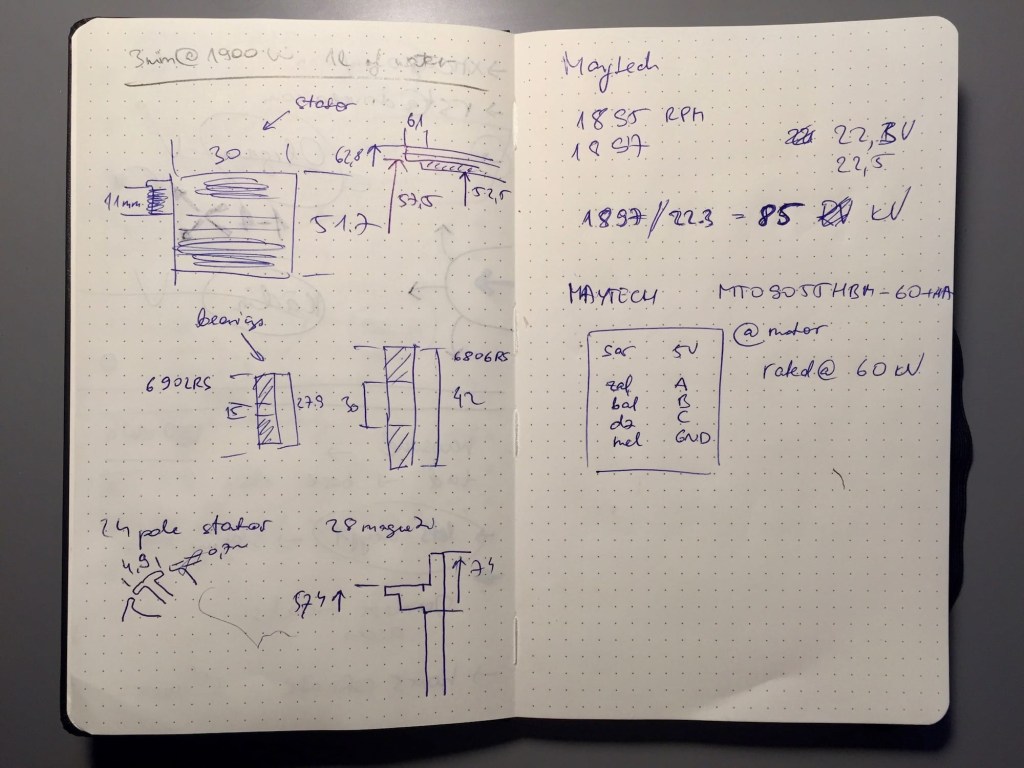 3min @ 1900 W 1L of water
stator
30
11mm
51.7
6,1
62,8
57,5
52,5
bearings
6902RS
15
27.9
6806RS
30
42
24 pole stator
4,9
0,7
28 magnetů
57.4
74
Maytech
1895 RPM
1897
22,3V
22,5
1897//22.3 = 85 kV
MAYTECH MTO9055HBM-60-HA
@ motor
rated @ 60 kV
5V
A
bal B
C
GND